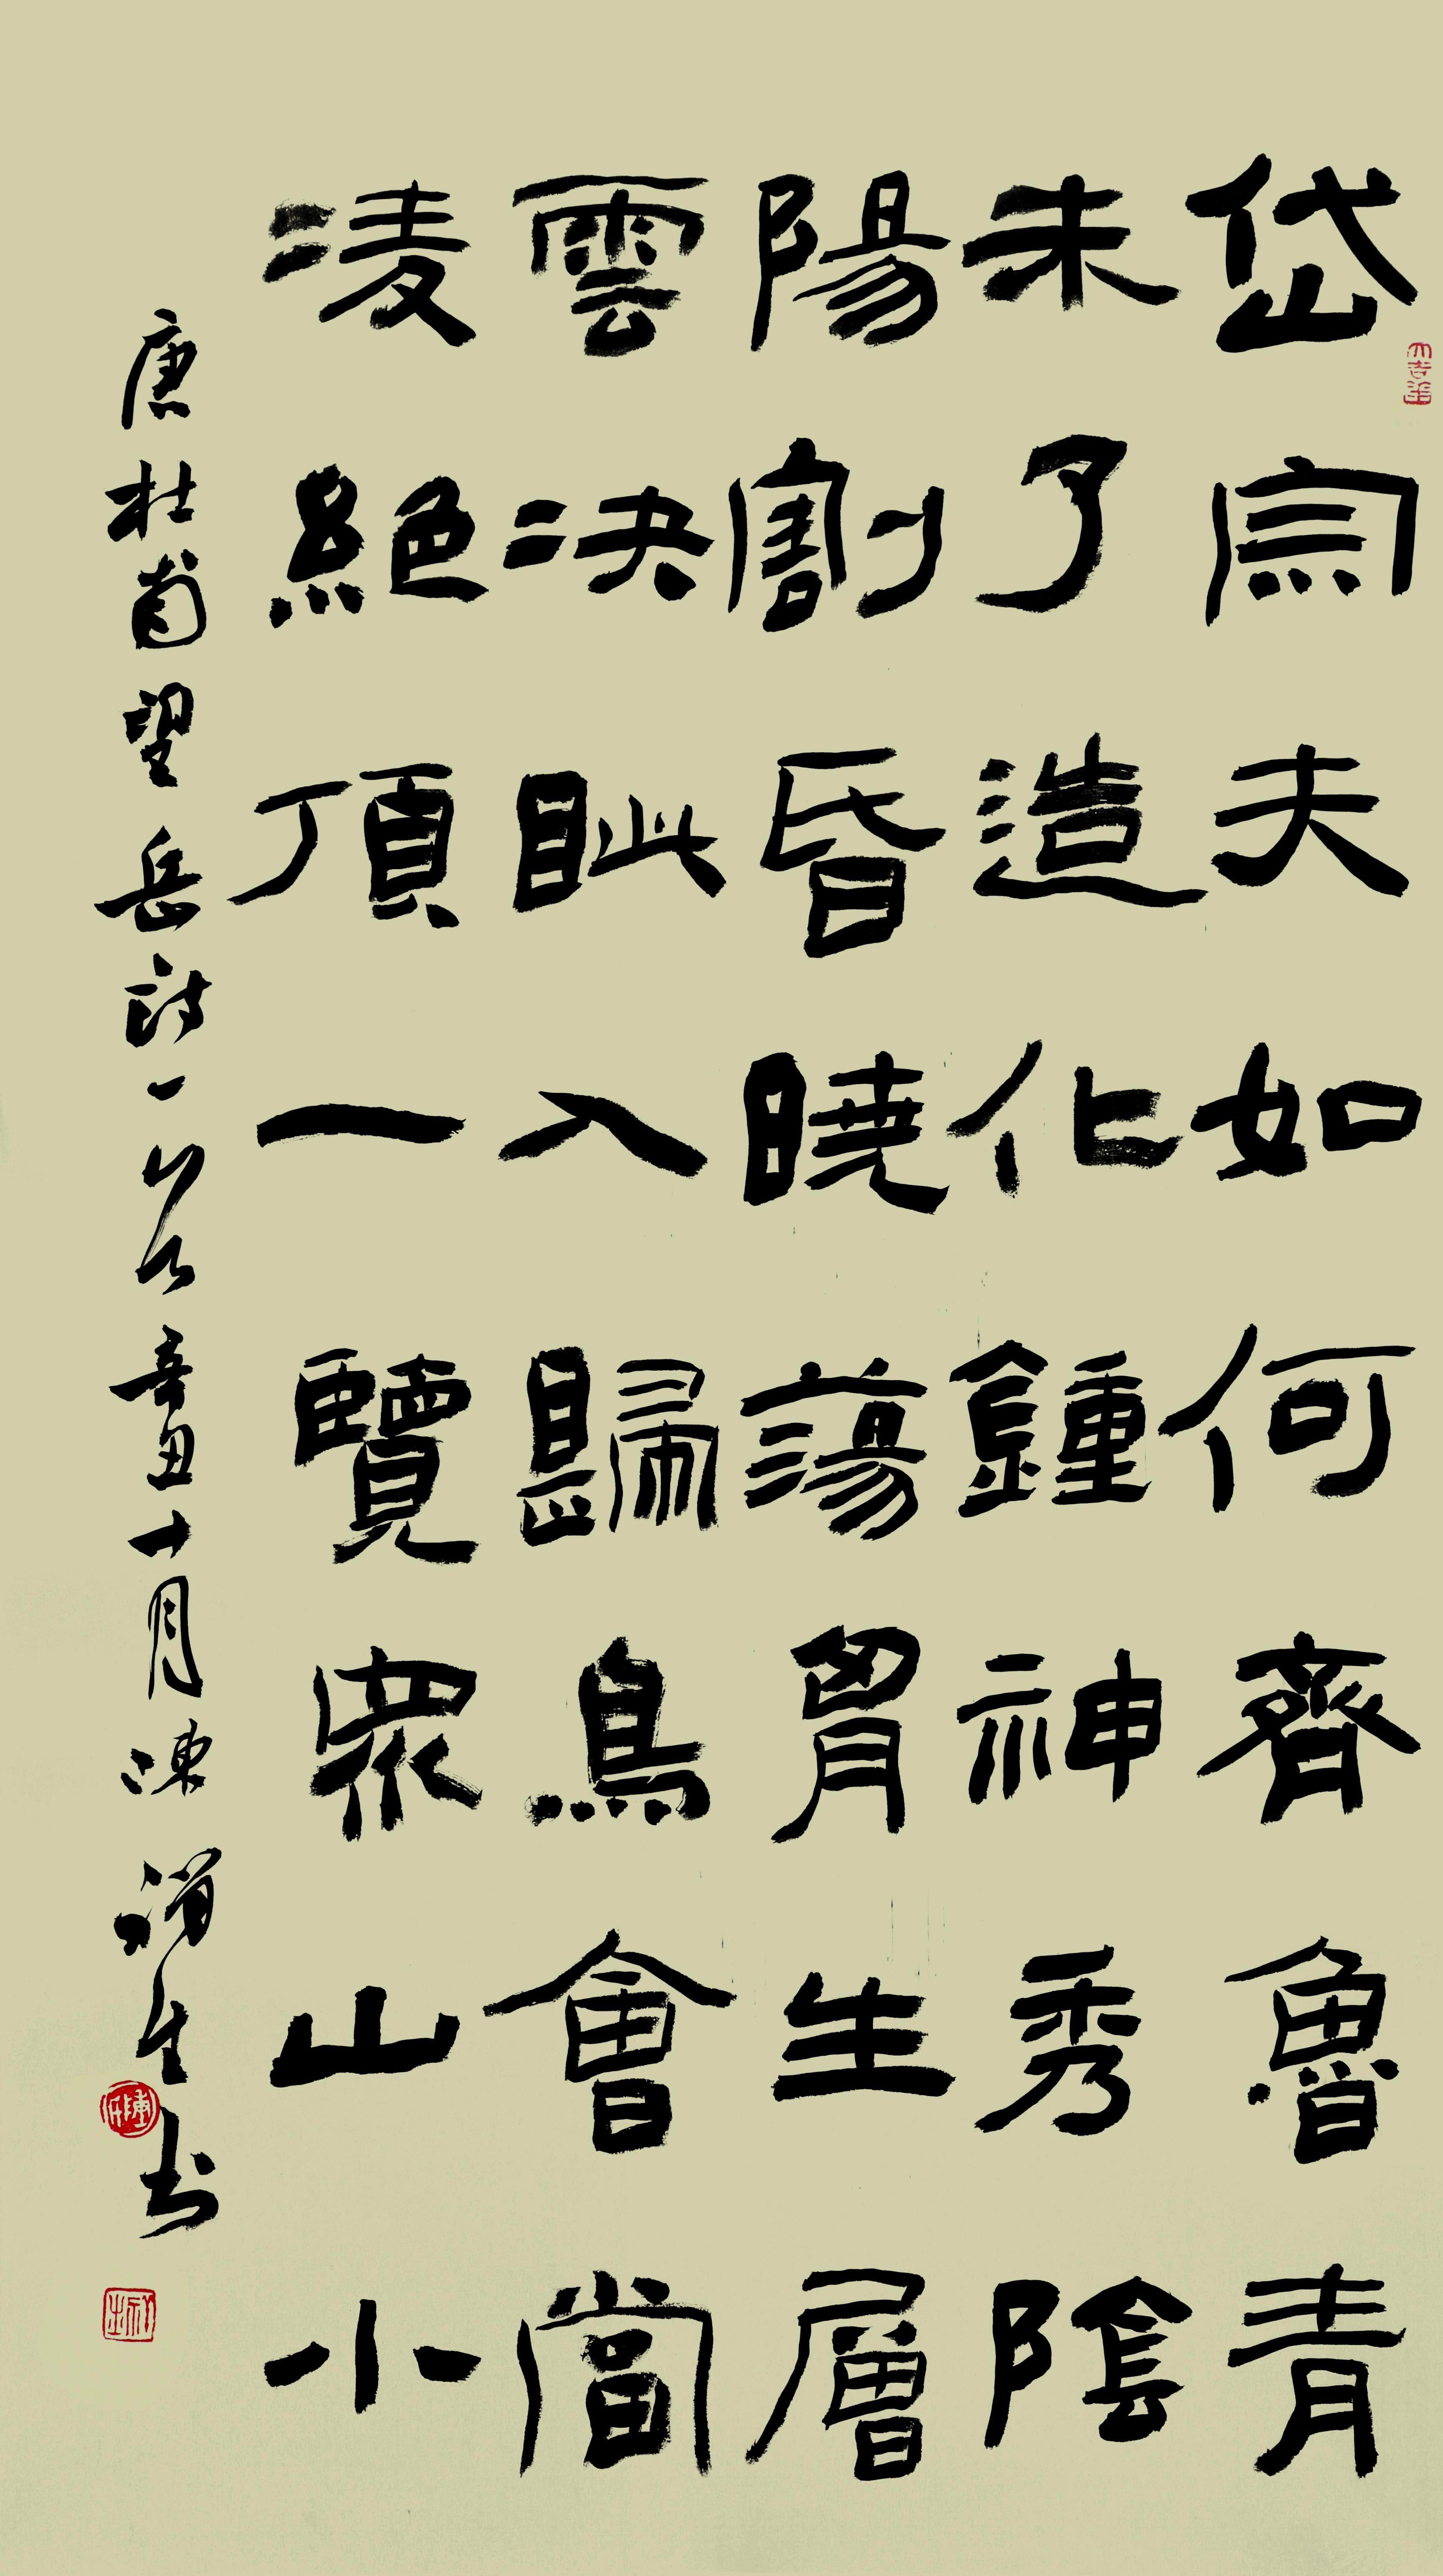 岱宗夫如何齊魯青
未了造化鍾神秀陰
陽割昏曉蕩胷生層
雲决眦入歸鳥會當
凌絕頂一覽眾山小
唐杜甫望岳詩一首辛丑十月陳生书